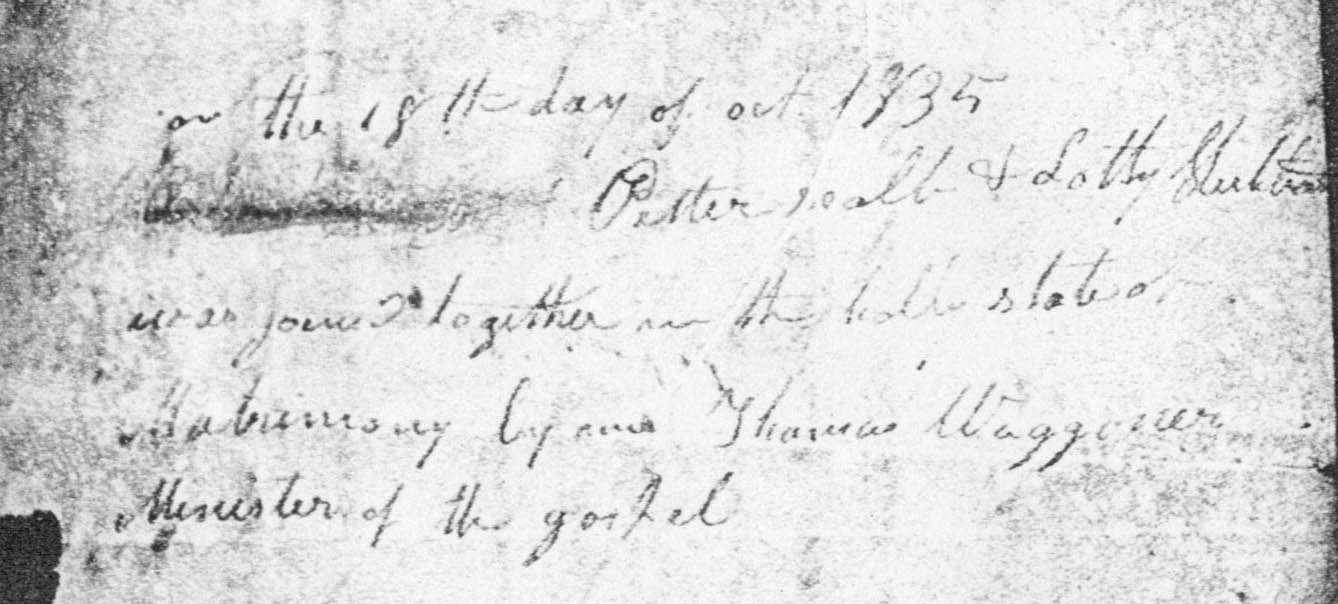 on the 18th day of oct 1835
Petter & Lotty
was joined together in the state of
Matrimony by me Thomas Waggoner
Minister of the gospel